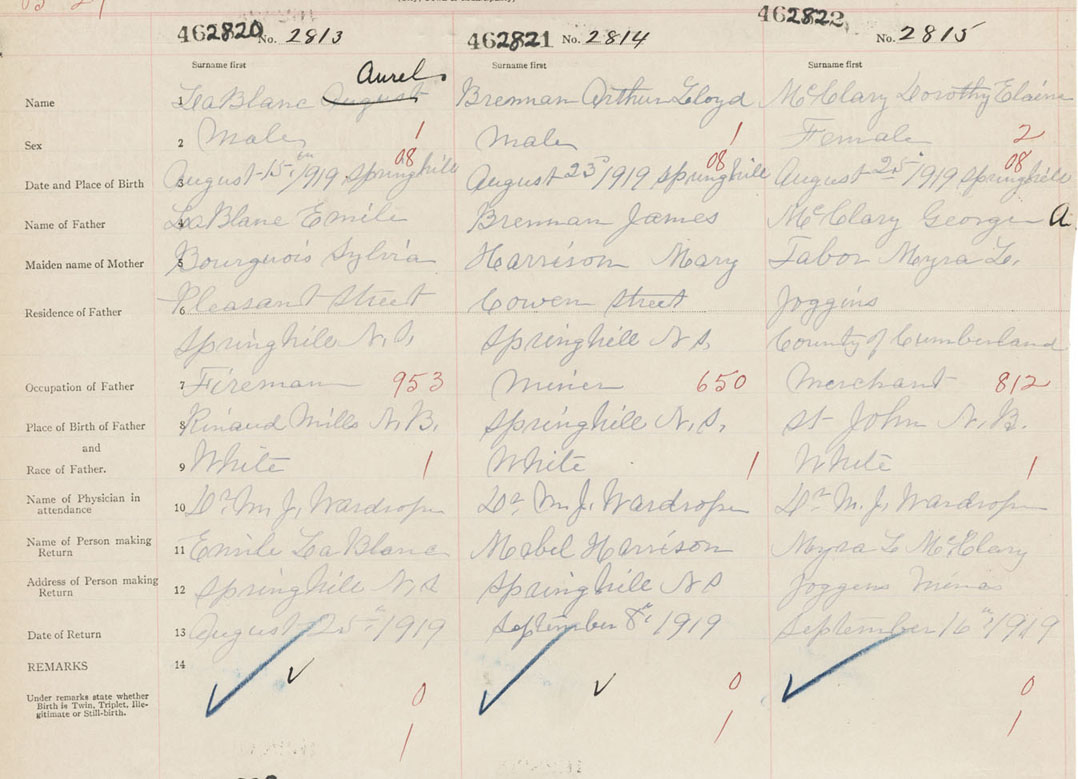 462820 No. 2813 462821 No. 2814 462822 No. 2815
Surname first Surname first Surname first
Aurel
Name 1 LaBlanc August Brennan Arthur Lloyd McClary Dorothy Elaine
Sex 2 Male 1 Male 1 Female 2
08 08 08
Date and Place of Birth 3 August 15th/1919 Springhill August 23rd/1919 Springhill August 25th/1919 Springhill
Name of Father 4 LaBlanc Emile Brennan James McClary George A
Maiden name of Mother 5 Bourguois Sylvia Harrison Mary Tabor Meyra L.
Residence of Father 6 Pleasant Street Cowen Street Joggins
Springhill N.S. Springhill N.S. County of Cumberland
Occupation of Father 7 Fireman 953 Miner 650 Merchant 812
Place of Birth of Father 8 Rinaud Mills N.B. Springhill N.S. St John N.B.
and
Race of Father. 9 White 1 White 1 White 1
Name of Physician in
attendance 10 Dr. M. J. Wardrope Dr. M. J. Wardrope Dr. M. J. Wardrope
Name of Person making
Return 11 Emile LaBlanc Mabel Harrison Meyra L McClary
Address of Person making
Return 12 Springhill N.S Springhill N S Joggens Mines
Date of Return 13 August 25th/1919 September 8th/1919 September 16th/1919
REMARKS 14
Under remarks state whether
Birth is Twin, Triplet, Ille-
gitimate or Still-birth.
0 0 0
1 1 1